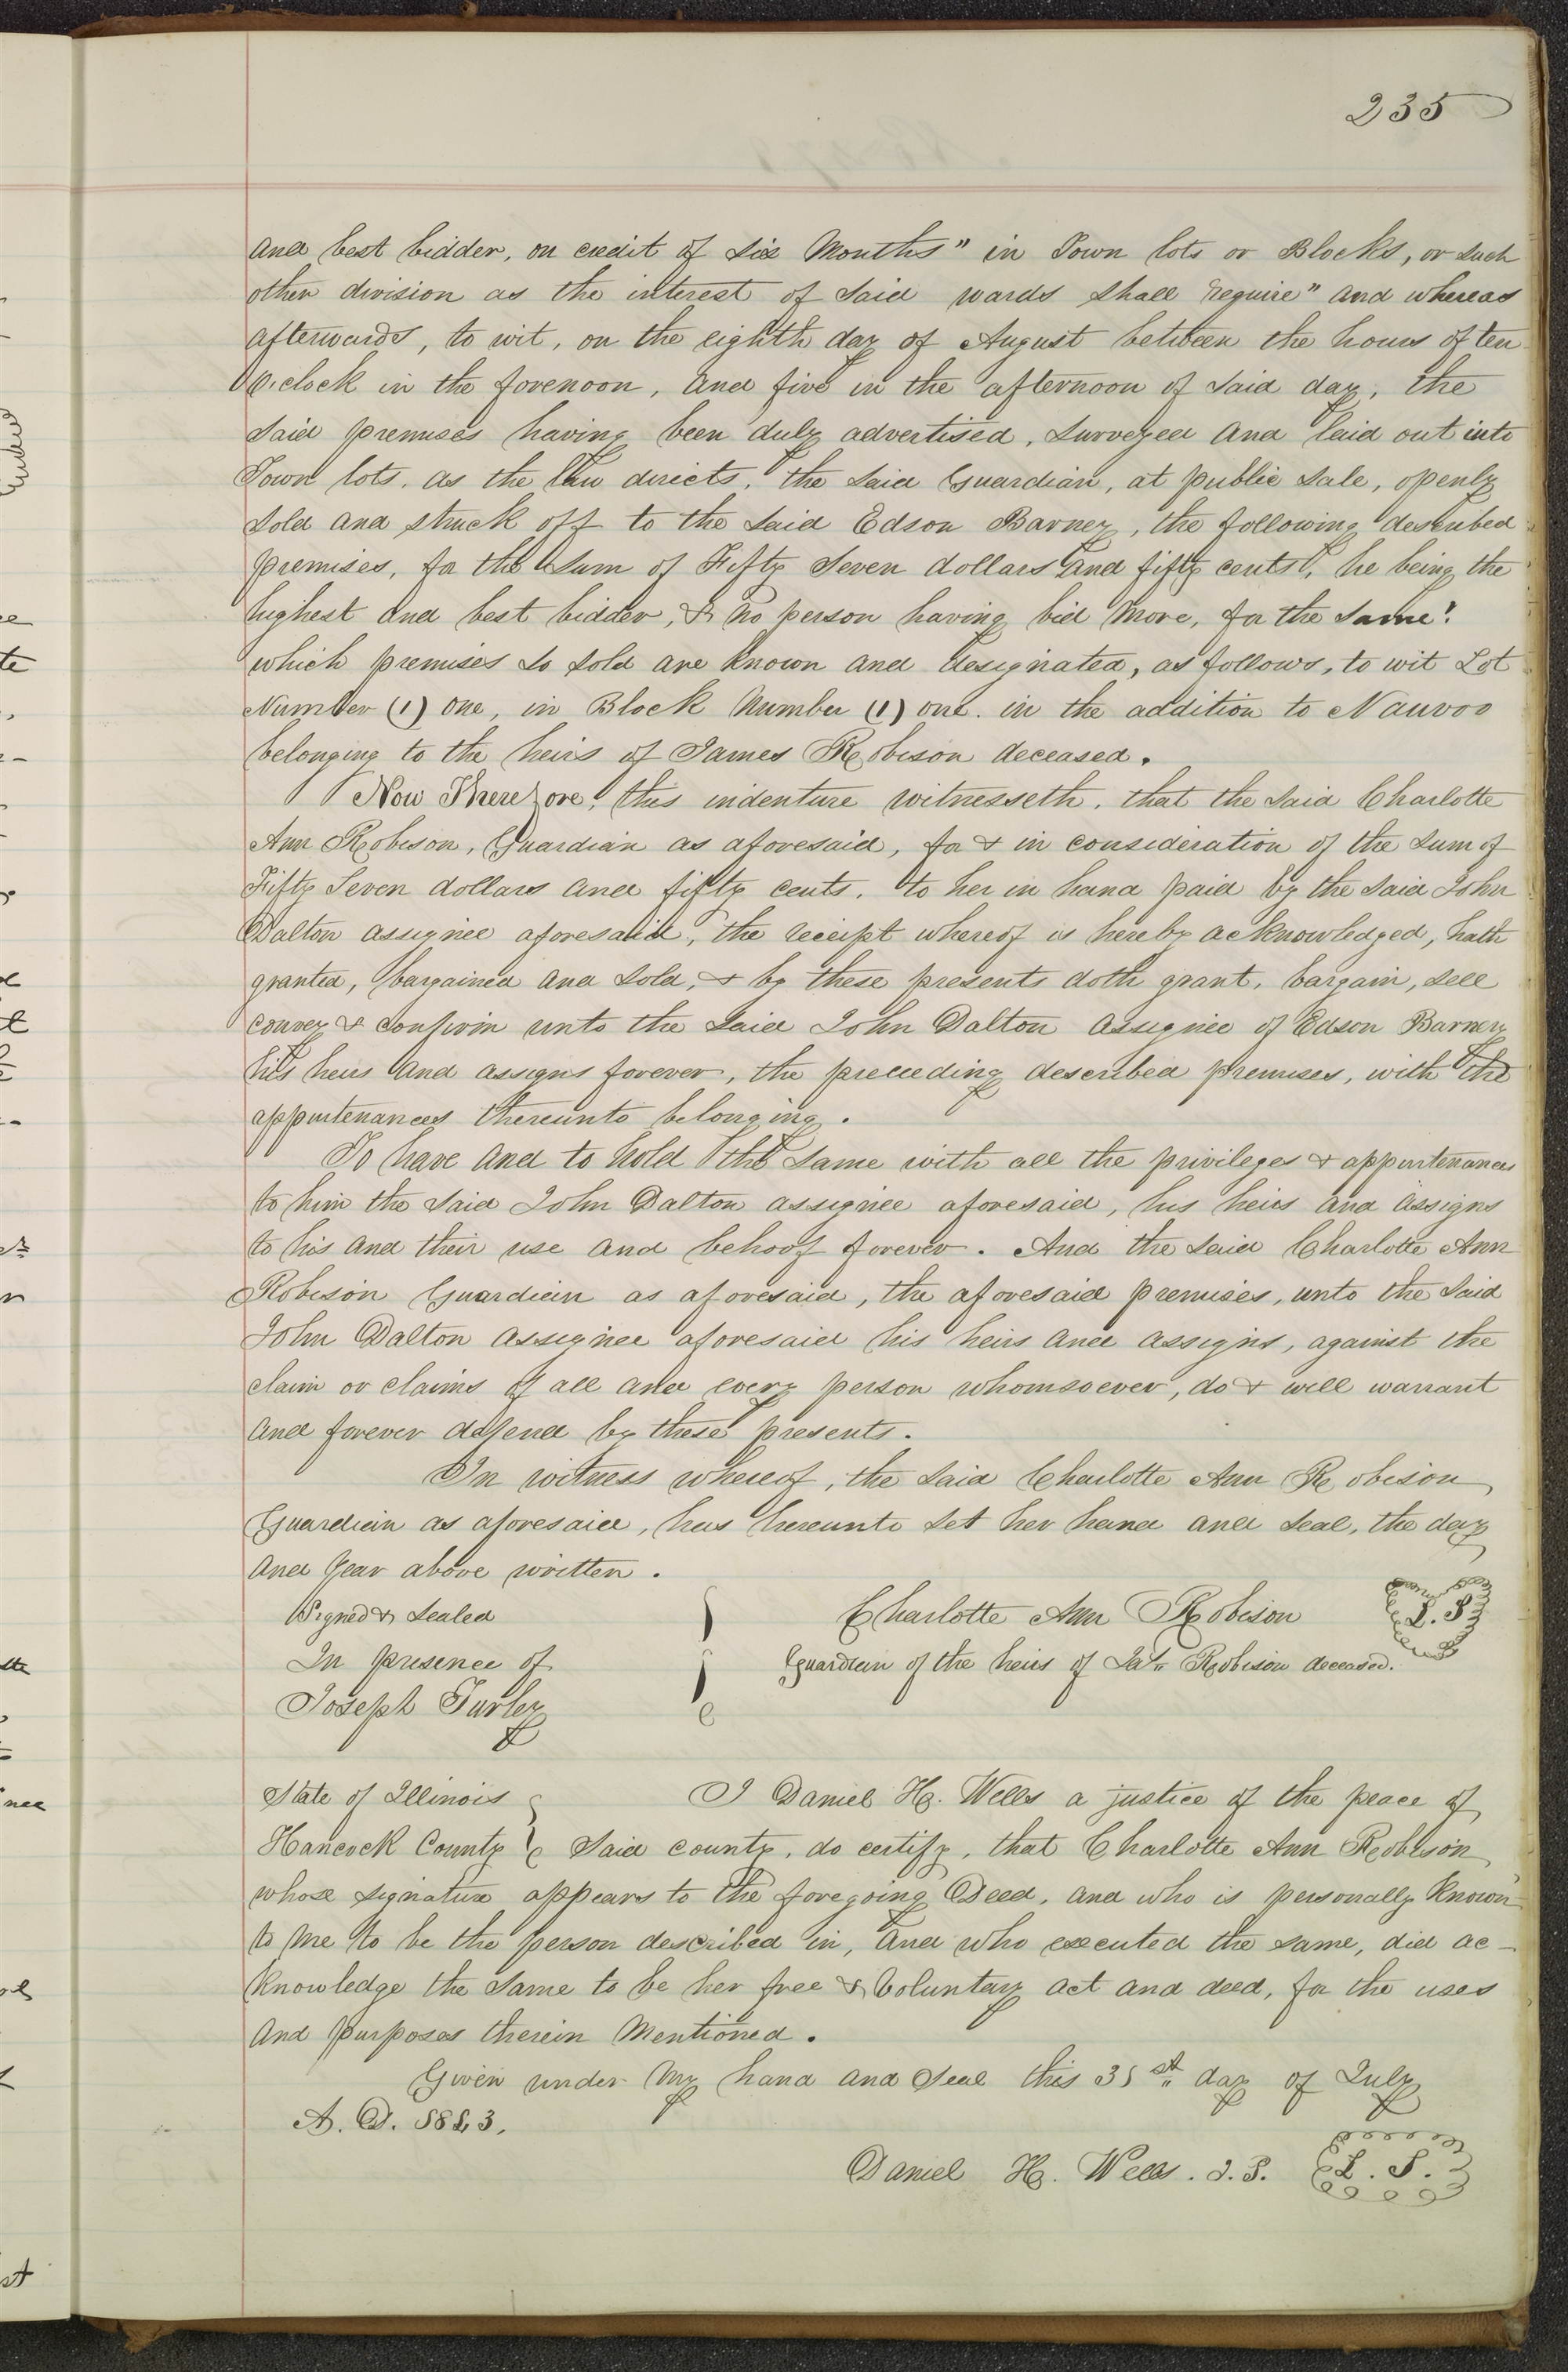 235
and best bidder, on credit of six Months" in Town lots or Blocks, or such
other division as the interest of said wards shall require" and whereas
afterwards, to wit, on the eighth day of August between the hours of ten
O'clock in the forenoon, and five in the afternoon of said day, the
said premises having been duly advertised, surveyed and laid out into
Town lots, as the law directs, the said Guardian, at public sale, openly
sold and struck off to the said Edson Barney, the following described
premises, for the sum of Fifty Seven dollars and fifty cents, he being the
highest and best bidder, & no person having bid more, for the same:
which premises so sold are known and designated, as follows, to wit Lot
Number (1) one, in Block Number (1) one. in the addition to Nauvoo
belonging to the heirs of James Robison deceased.
Now Therefore, this indenture witnesseth, that the said Charlotte
Ann Robison, Guardian as aforesaid, for & in consideration of the sum of
Fifty Seven dollars and fifty cents, to her in hand paid by the said John
Dalton assignee aforesaid, the receipt whereof is hereby acknowledged, hath
granted, bargained and sold, & by these presents doth grant, bargain, sell
convey & confirm unto the said John Dalton assignee of Edson Barney
his heirs and assigns forever, the preceeding described premises, with the
appurtenances thereunto belonging.
To have and to hold the same with all the privileges & appurtenances
to him the said John Dalton assignee aforesaid, his heirs and assigns
to his and their use and behoof forever. And the said Charlotte Ann
Robison Guardian as aforesaid, the aforesaid premises, unto the said
John Dalton assignee aforesaid his heirs and assigns, against the
claim or claims of all and every person whomsoever, do & will warrant
and forever defend by these presents.
In witness whereof, the said Charlotte Ann Robison
Guardian as aforesaid, has hereunto set her hand and seal, the day
and year above written.
Signed & Sealed
In presence of
Joseph Turley
Charlotte Ann Robison L.S.
Guardian of the heirs of Ja.s Robison deceased.
State of Illinois
Hancock County
I Daniel H. Wells a justice of the peace of
said county, do certify, that Charlotte Ann Robison
whose signature appears to the foregoing Deed, and who is personally known
to me to be the person described in, and who executed the same, did ac-
knowledge the same to be her free & voluntary act and deed, for the uses
and purposes therein mentioned.
Given under my hand and seal this 31st day of July
A. D. 1843.
Daniel H. Wells. J. P. L. S.